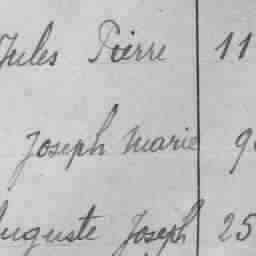 Jules Pierre 11
Joseph Marie 9
Auguste Joseph 25